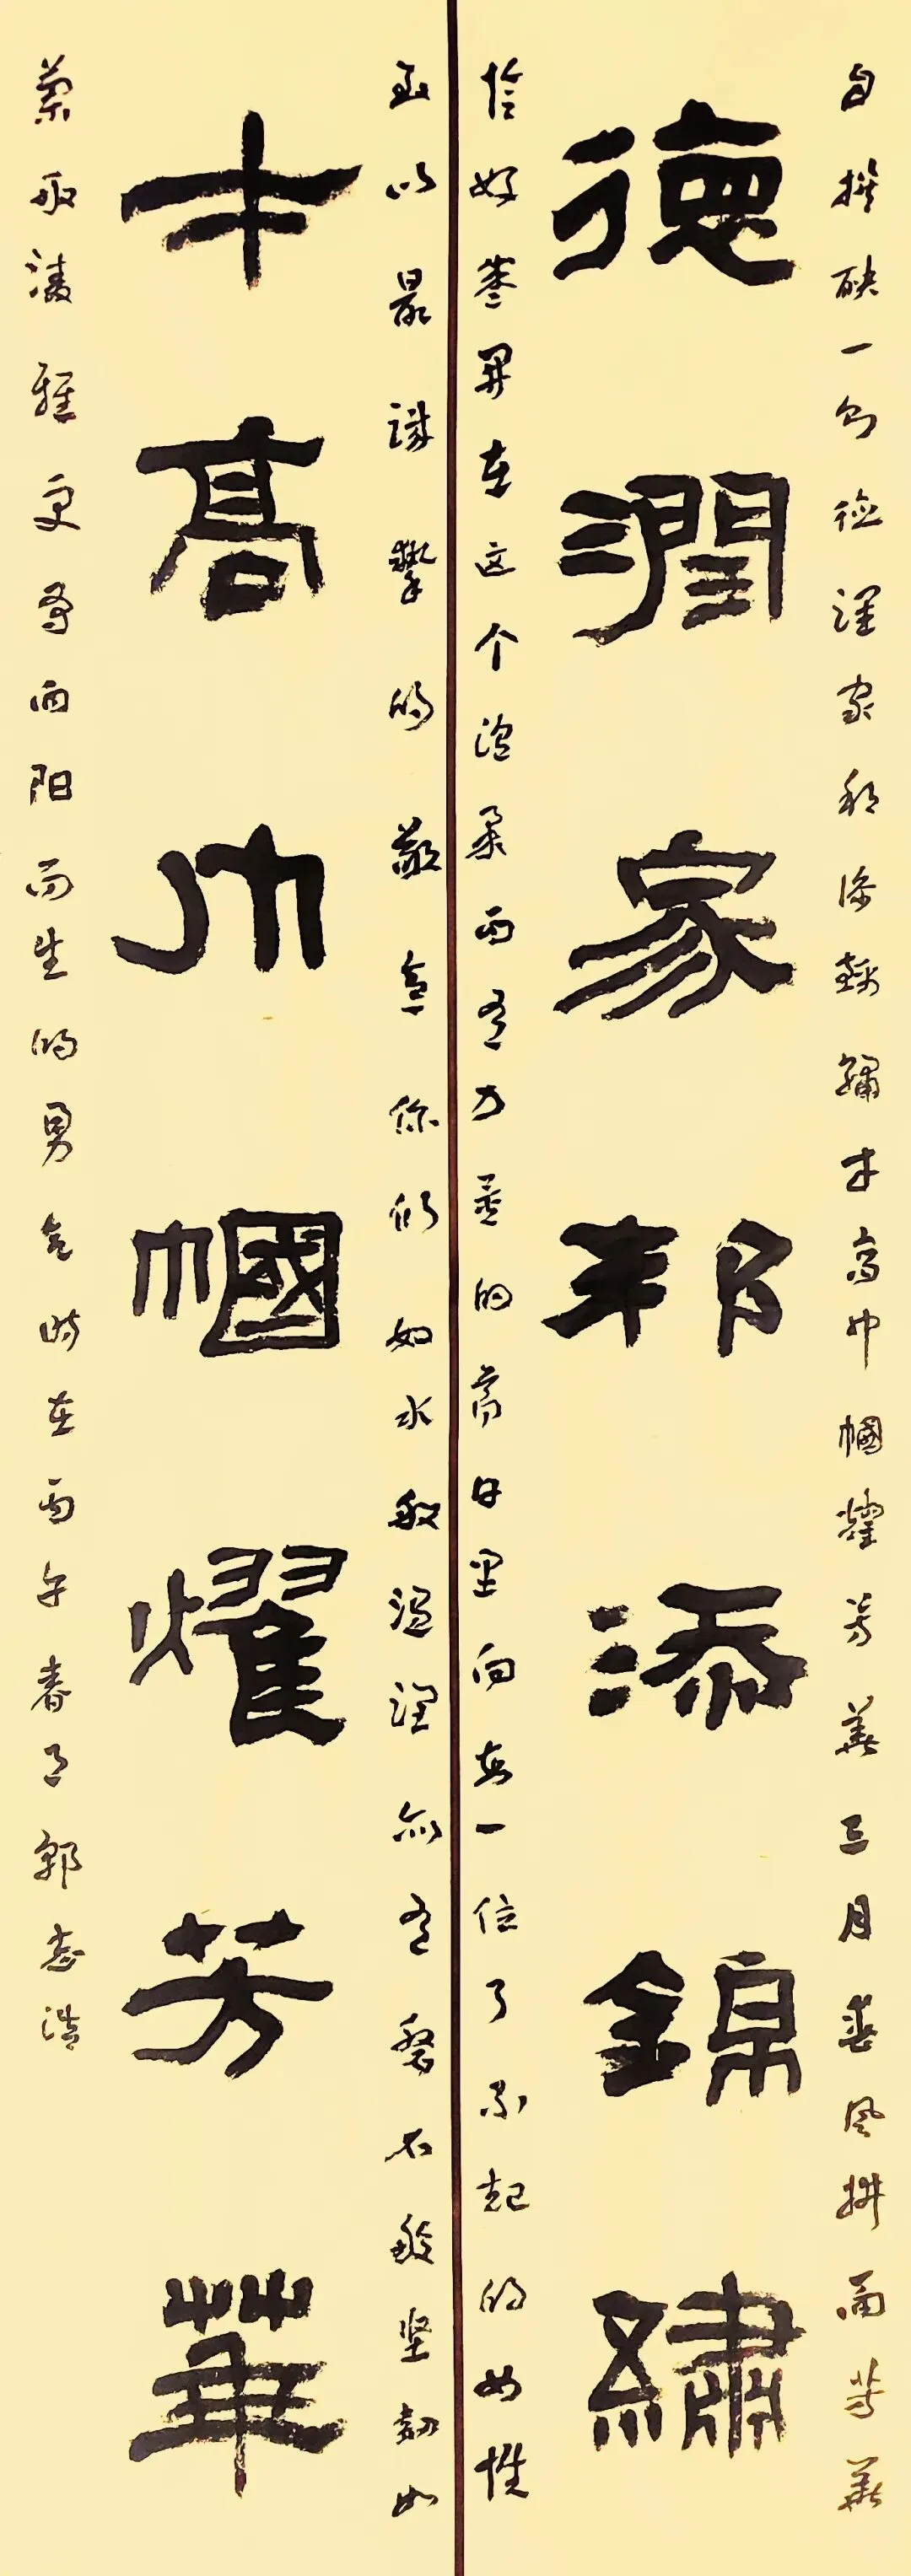 自撰联一句德润家邦添錦繡才高巾帼耀芳華三月春风拂面芳華
德潤家邦添錦繡
恰好盛开在这个温柔而有力量的节日里向每一位了不起的女性
致以最诚挚的敬意你们如水般温润亦有磐石般坚韧如
才高巾幗耀芳華
蘭般雅更向阳而生的勇气时在丙午春郭志浩